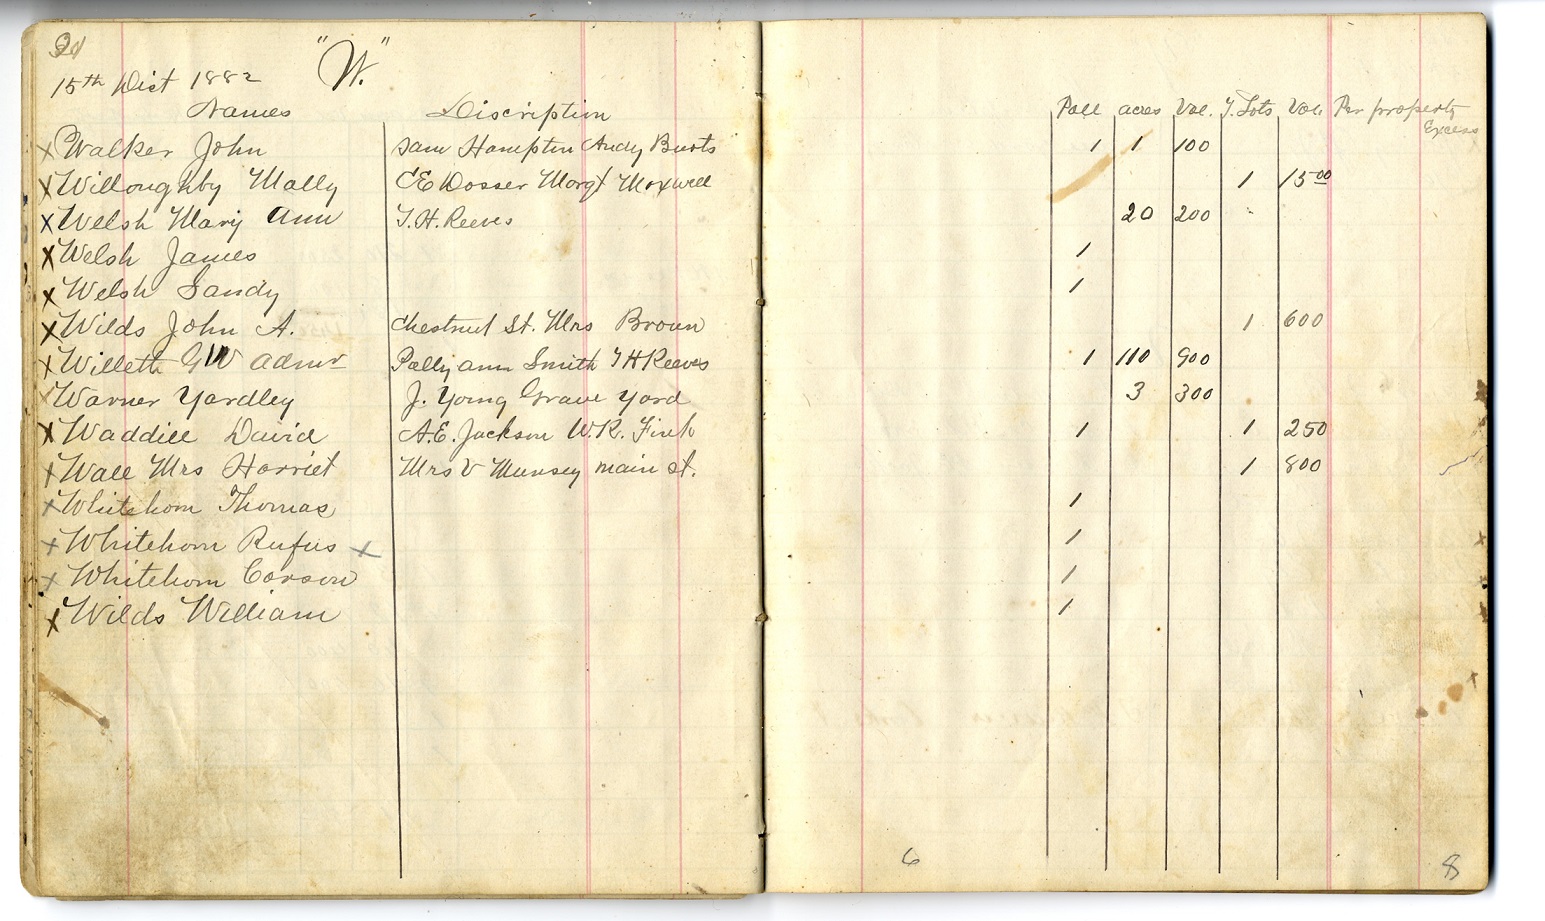 "W."
15th Dist 1882
Names Discription Poll acres Val. T. Lots Val. Per property Excess
x Walker John Sam Hampton Andy Burts 1 1 100
x Willoughby Mally CE Dosser Morgt Maxwell 1 15 00
x Welsh Mary Ann T. H. Reeves 20 200
x Welsh James 1
x Welsh Sandy 1
x Wilds John A. Chestnut St. Mrs Brown 1 600
x Willeth G W admr Polly ann Smith T H Reeves 1 110 900
x Warner Yardley J. Young Grave Yard 3 300
x Waddill David A. E. Jackson W. R. Fink 1 1 250
x Wall Mrs Harriet Mrs V Munsey main st. 1 800
x Whitehorn Thomas 1
x Whitehorn Rufus x 1
x Whitehorn Carson 1
x Wilds William 1
6 8